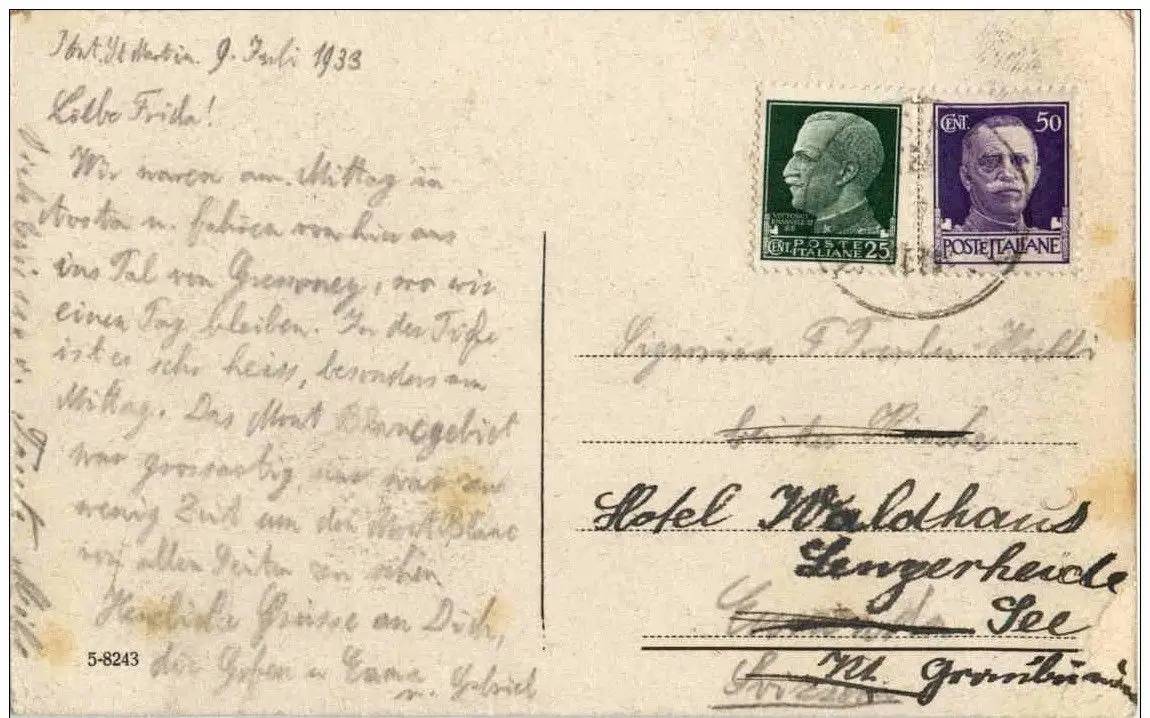 Pont. St Martin. 9. Juli 1933
Liebe Frida!
Wir waren am Mittag in
Aosta u. fahren von hier aus
ins Tal von Gressoney, wo wir
einen Tag bleiben. In der Tiefe
ist es sehr heiss, besonders am
Mittag. Das Mont Blancgebiet
war grossartig, nur war zu
wenig Zeit um den Mont Blanc
von allen Seiten zu sehen
Herzliche Grüsse an Dich,
die Goben u Emma
u. Gabriel
5-8243
CENT. POSTE ITALIANE 25
VITTORIO EMANUELE III RE
CENT. 50
POSTE ITALIANE
Signorina F
bei der
Hotel Waldhaus
Lenzerheide
See
Kt. Graubünden
Svizzera